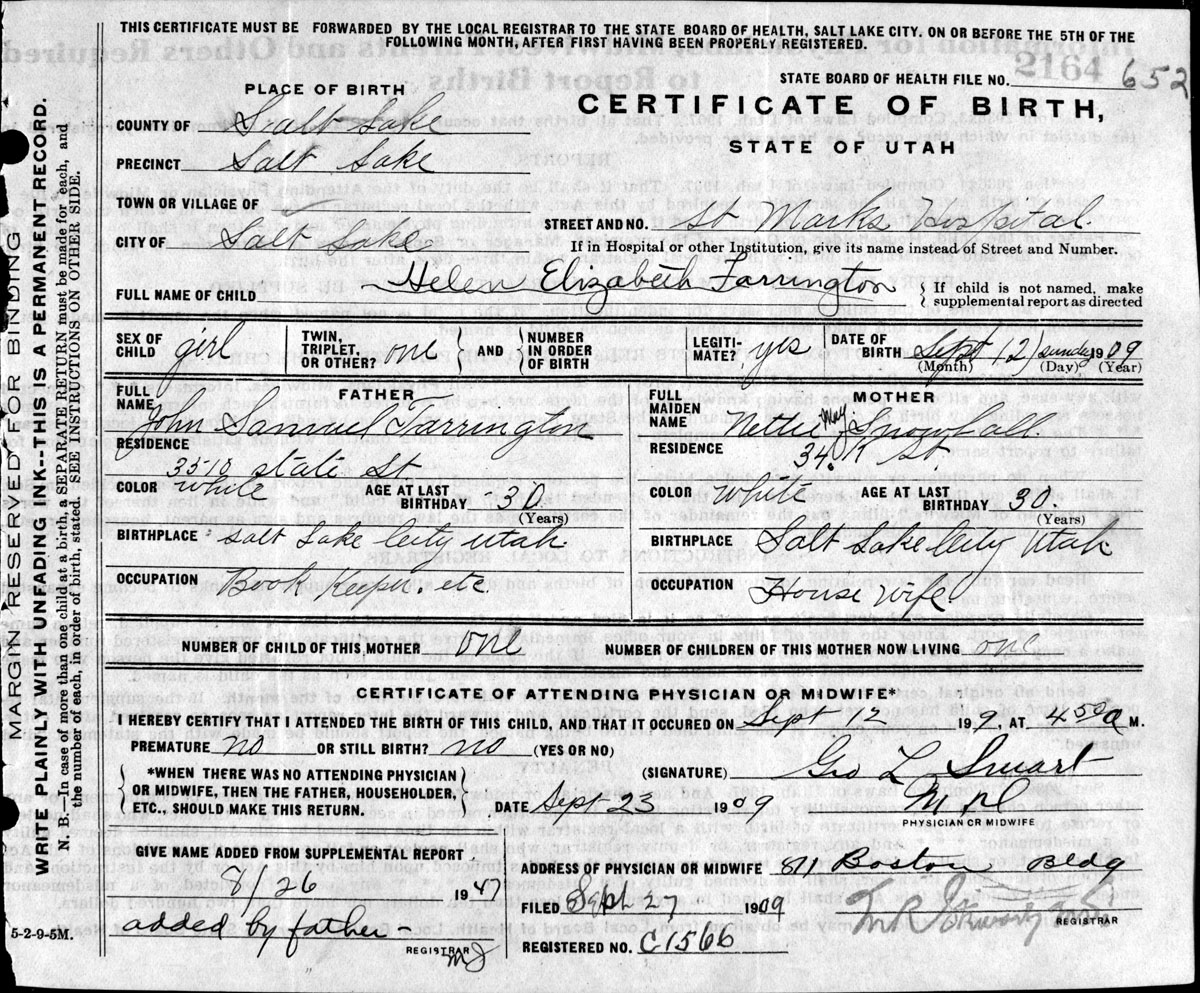 THIS CERTIFICATE MUST BE FORWARDED BY THE LOCAL REGISTRAR TO THE STATE BOARD OF HEALTH, SALT LAKE CITY. ON OR BEFORE THE 5TH OF THE
FOLLOWING MONTH, AFTER FIRST HAVING BEEN PROPERLY REGISTERED.
STATE BOARD OF HEALTH FILE NO. 2164 652
PLACE OF BIRTH
CERTIFICATE OF BIRTH,
STATE OF UTAH
COUNTY OF Salt Lake
PRECINCT Salt Lake
TOWN OR VILLAGE OF
STREET AND NO. St Marks Hospital
CITY OF Salt Lake
If in Hospital or other Institution, give its name instead of Street and Number.
FULL NAME OF CHILD Helen Elizabeth Farrington { If child is not named, make
supplemental report as directed
SEX OF CHILD girl TWIN, TRIPLET, OR OTHER? one { AND } NUMBER IN ORDER OF BIRTH LEGITI-MATE? yes DATE OF BIRTH Sept 12 Sunday 1909
(Month) (Day) (Year)
FATHER
FULL NAME John Samuel Farrington
RESIDENCE
State St
COLOR White AGE AT LAST BIRTHDAY 30
(Years)
BIRTHPLACE Salt Lake City Utah
OCCUPATION Book Keepr, etc
MOTHER
FULL MAIDEN NAME Nettie May Snowball
RESIDENCE 34 K St.
COLOR White AGE AT LAST BIRTHDAY 30.
(Years)
BIRTHPLACE Salt Lake City Utah
OCCUPATION House wife
NUMBER OF CHILD OF THIS MOTHER one NUMBER OF CHILDREN OF THIS MOTHER NOW LIVING one
CERTIFICATE OF ATTENDING PHYSICIAN OR MIDWIFE*
I HEREBY CERTIFY THAT I ATTENDED THE BIRTH OF THIS CHILD, AND THAT IT OCCURED ON Sept 12 199, AT 450a M.
PREMATURE no OR STILL BIRTH? no (YES OR NO)
*WHEN THERE WAS NO ATTENDING PHYSICIAN
OR MIDWIFE, THEN THE FATHER, HOUSEHOLDER,
ETC., SHOULD MAKE THIS RETURN.
(SIGNATURE) Geo L Smart
DATE Sept 23 1909
PHYSICIAN OR MIDWIFE
GIVE NAME ADDED FROM SUPPLEMENTAL REPORT
7/26 1947
added by father -
REGISTRAR
ADDRESS OF PHYSICIAN OR MIDWIFE 811 Boston Bldg
FILED Sept 27 1909
REGISTRAR
REGISTERED NO. C1566
5-2-9-5M.
MARGIN RESERVED FOR BINDING
WRITE PLAINLY WITH UNFADING INK--THIS IS A PERMANENT RECORD.
N. B.—In case of more than one child at a birth, a SEPARATE RETURN must be made for each, and
the number of each, in order of birth, stated. SEE INSTRUCTIONS ON OTHER SIDE.